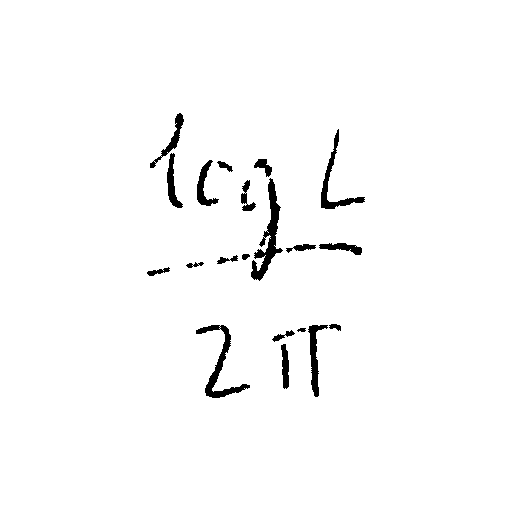 log L
2 π